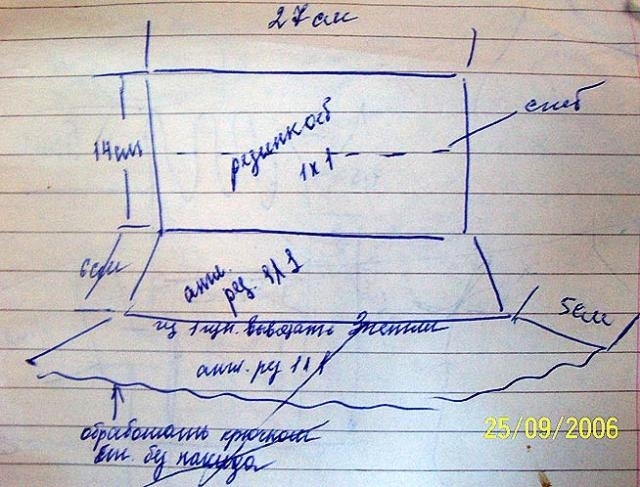 27 см
сгиб
14 см
резинкой
1x1
6 см
англ.
рез. 1x1
5 см
из 1 пет. вывязать 3 петли
англ. рез 1x1
обработать крючком
ст. без накида
25/09/2006